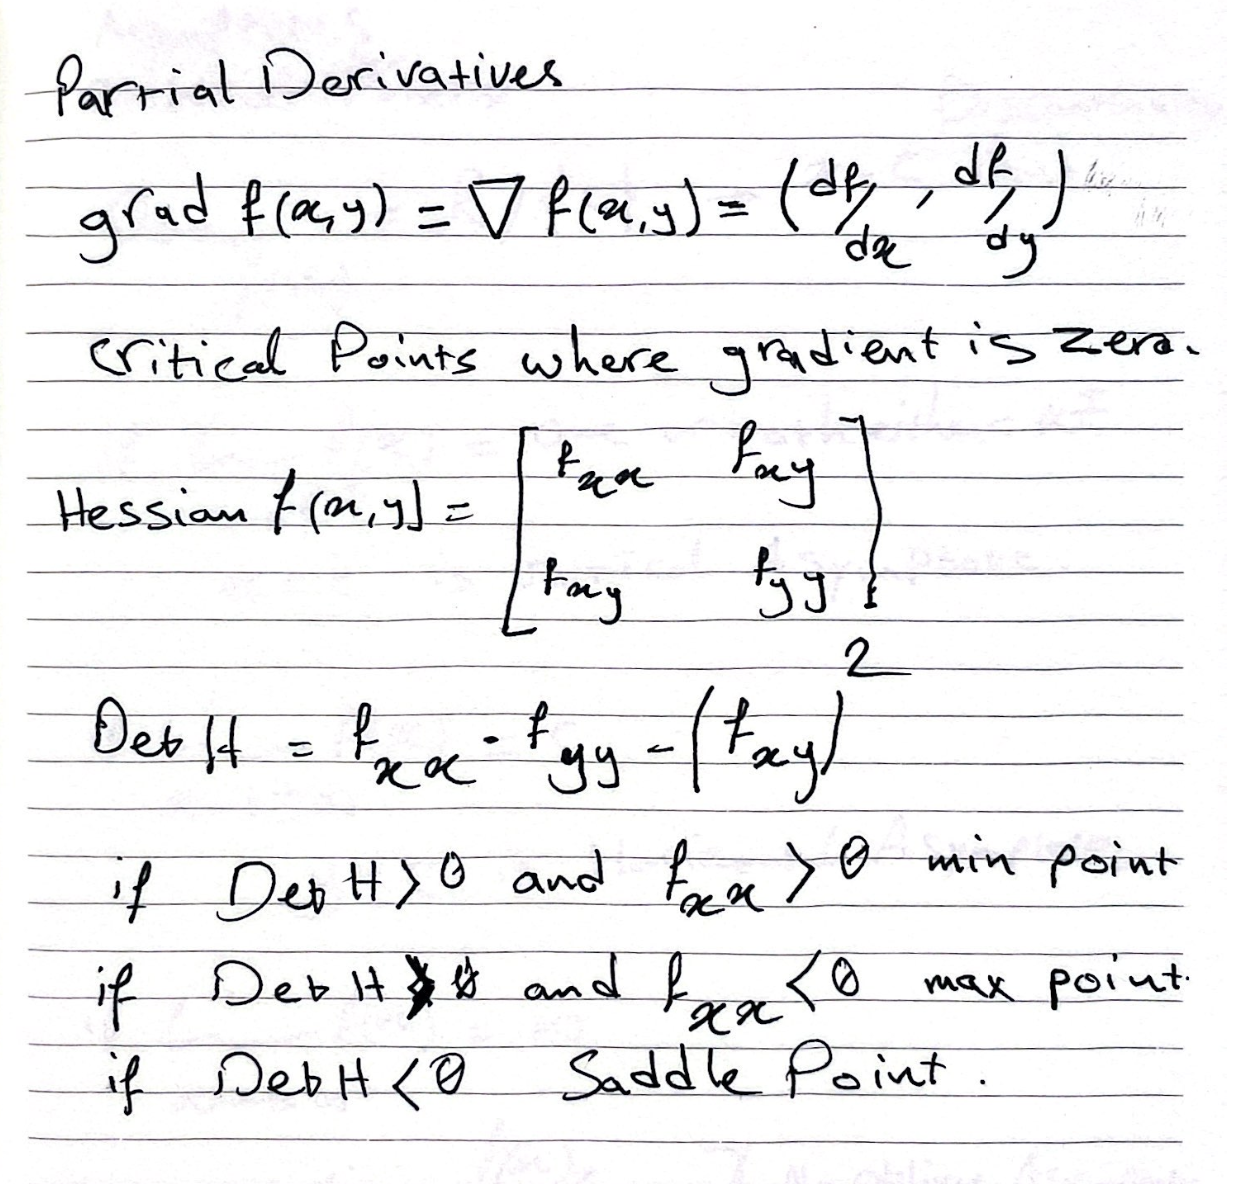 Partial Derivatives
grad f(x,y) = ∇ f(x,y) = (df/dx , df/dy)
Critical Points where gradient is zero.
Hessian f(x,y) = [ fxx fxy
fxy fyy ]
Det H = fxx · fyy - (fxy)²
if Det H > 0 and fxx > 0 min point
if Det H > 0 and fxx < 0 max point.
if Det H < 0 Saddle Point.